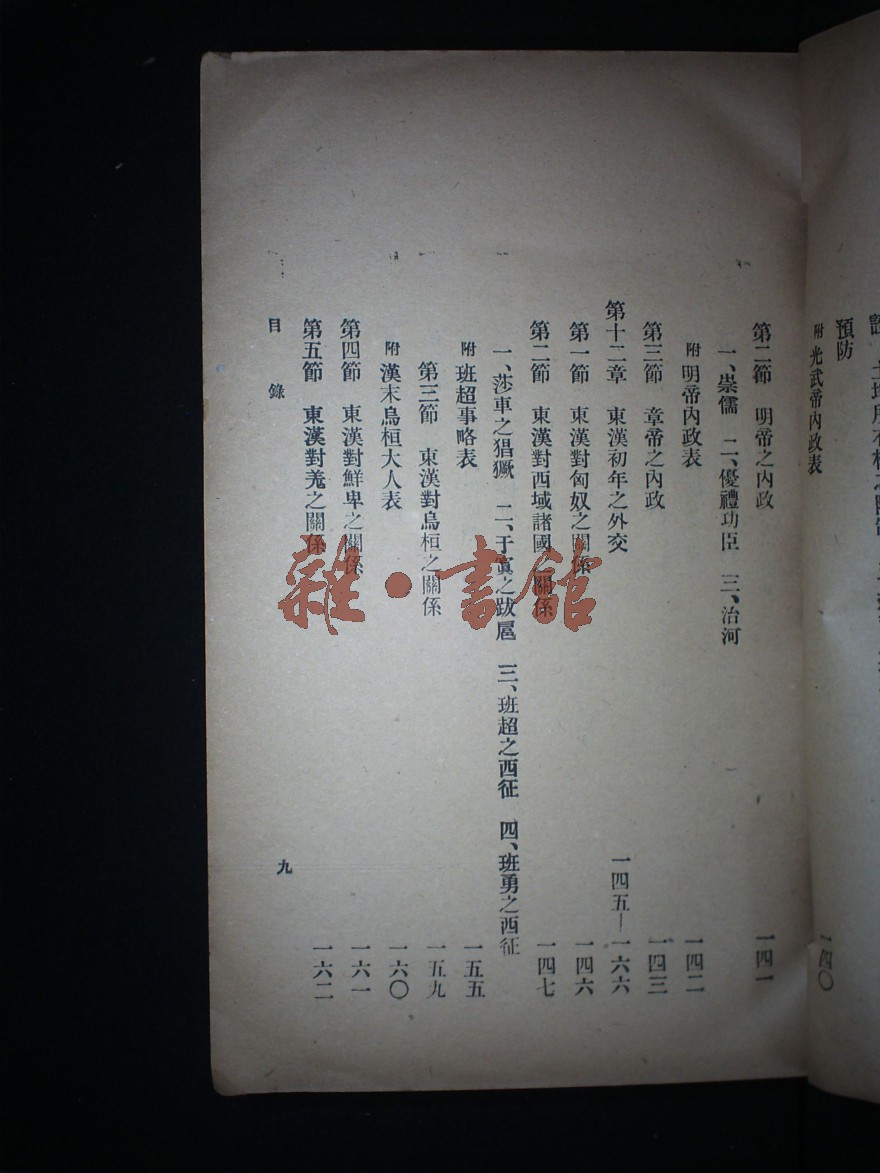 預防
附 光武帝內政表 一四〇
第二節 明帝之內政 一四一
一、崇儒 二、優禮功臣 三、治河
附 明帝內政表 一四二
第三節 章帝之內政 一四三
第十二章 東漢初年之外交 一四五—一六六
第一節 東漢對匈奴之關係 一四六
第二節 東漢對西域諸國之關係 一四七
一、莎車之猖獗 二、于窴之跋扈 三、班超之西征 四、班勇之西征
附 班超事略表 一五五
第三節 東漢對烏桓之關係 一五九
附 漢末烏桓大人表 一六〇
第四節 東漢對鮮卑之關係 一六一
第五節 東漢對羌之關係 一六二
目錄 九
雜·書館